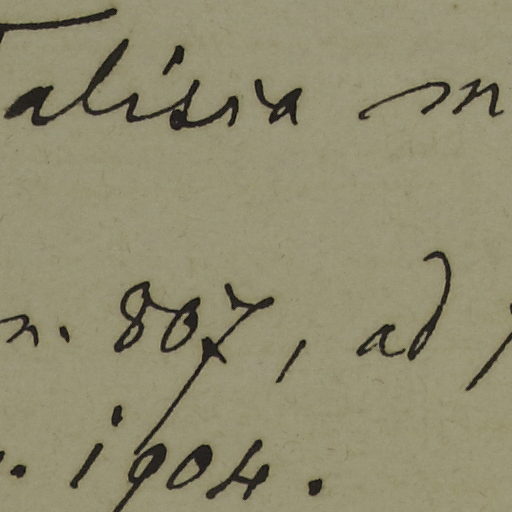 Talisia m
n. 807, ad
. 1904.